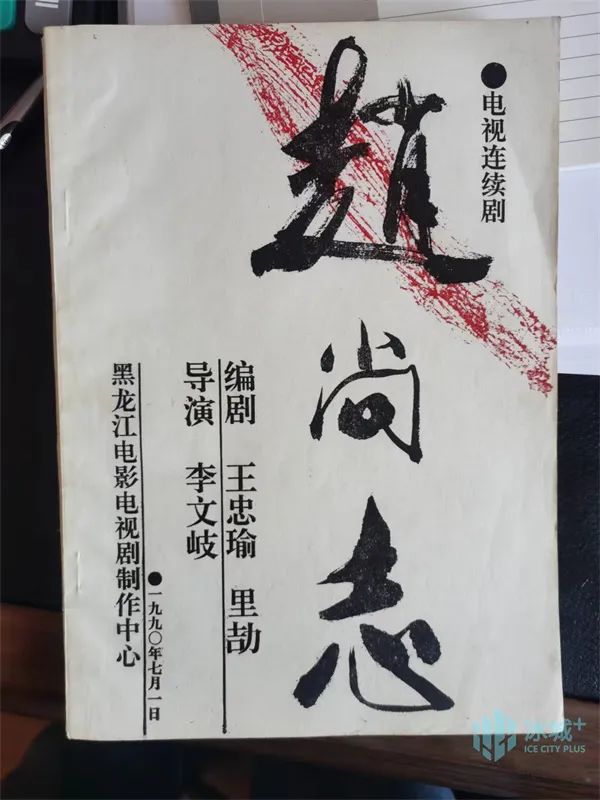 ●电视连续剧
趙尚志
编剧 王忠瑜 里劼
导演 李文岐
●一九九〇年七月一日
黑龙江电影电视剧制作中心
冰城+
ICE CITY PLUS